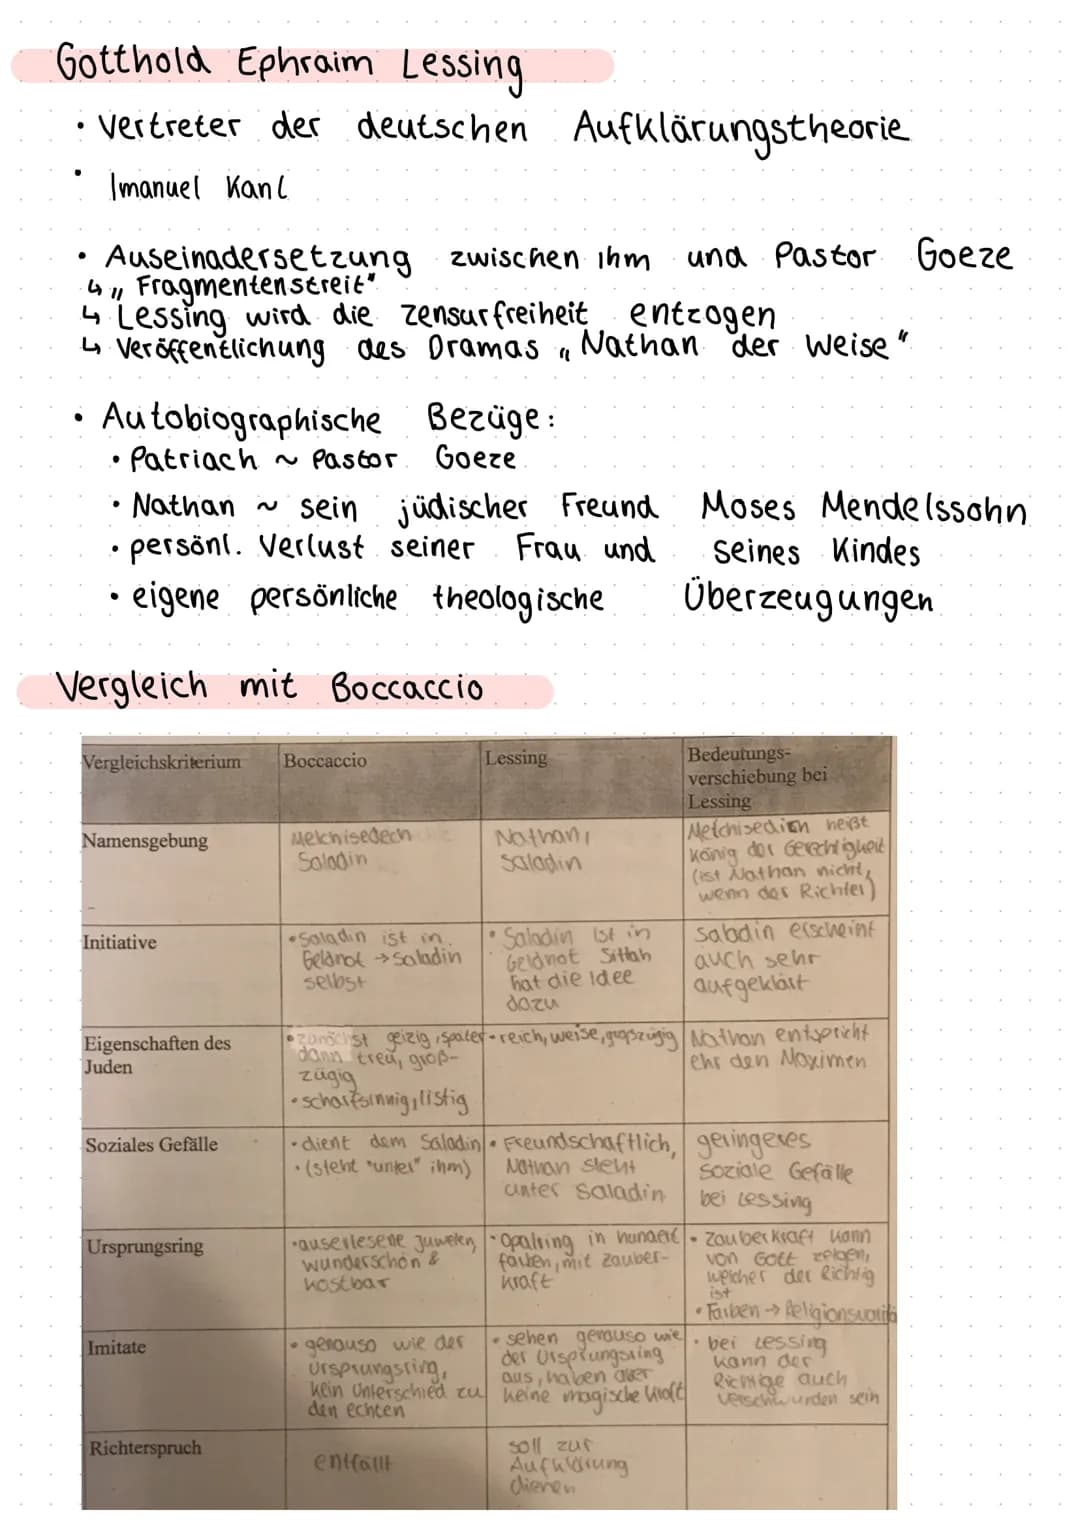 Gotthold Ephraim Lessing
• Vertreter der deutschen Aufklärungstheorie
• Imanuel Kant
• Auseinadersetzung zwischen ihm und Pastor Goeze
↳ „Fragmentenstreit"
↳ Lessing wird die Zensurfreiheit entzogen
↳ Veröffentlichung des Dramas „Nathan der Weise"
• Autobiographische Bezüge:
• Patriach ~ Pastor Goeze
• Nathan ~ sein jüdischer Freund Moses Mendelssohn
• persönl. Verlust seiner Frau und seines Kindes
• eigene persönliche theologische Überzeugungen
Vergleich mit Boccaccio
Vergleichskriterium
Boccaccio
Lessing
Bedeutungs-
verschiebung bei
Lessing
Namensgebung
Melchisedech
Saladin
Nathan,
Saladin
Melchisedich heißt
König der Gerechtigkeit
(ist Nathan nicht,
wenn der Richter)
Initiative
• Saladin ist in
Geldnot → Saladin
selbst
• Saladin ist in
Geldnot Sittah
hat die Idee
dazu
Saladin erscheint
auch sehr
aufgeklärt
Eigenschaften des
Juden
• zunächst geizig, später
dann treu, groß-
zügig
• scharfsinnig, listig
• reich, weise, großzügig
Nathan entspricht
ehr den Maximen
Soziales Gefälle
• dient dem Saladin
• (steht "unter" ihm)
• Freundschaftlich,
Nathan steht
unter Saladin
geringeres
Soziale Gefälle
bei Lessing
Ursprungsring
• auserlesene Juwelen,
wunderschön &
kostbar
• Opalring in hundert
farben, mit Zauber-
kraft
• Zauberkraft kann
von Gott zeigen,
welcher der Richtig
ist
• Farben → Religionsvariä
Imitate
• genauso wie der
Ursprungsring,
kein Unterschied zu
den echten
• sehen genauso wie
der Ursprungsring
aus, haben aber
keine magische Kraft
• bei Lessing
kann der
Richtige auch
verschwurden sein
Richterspruch
entfällt
soll zur
Aufklärung
dienen